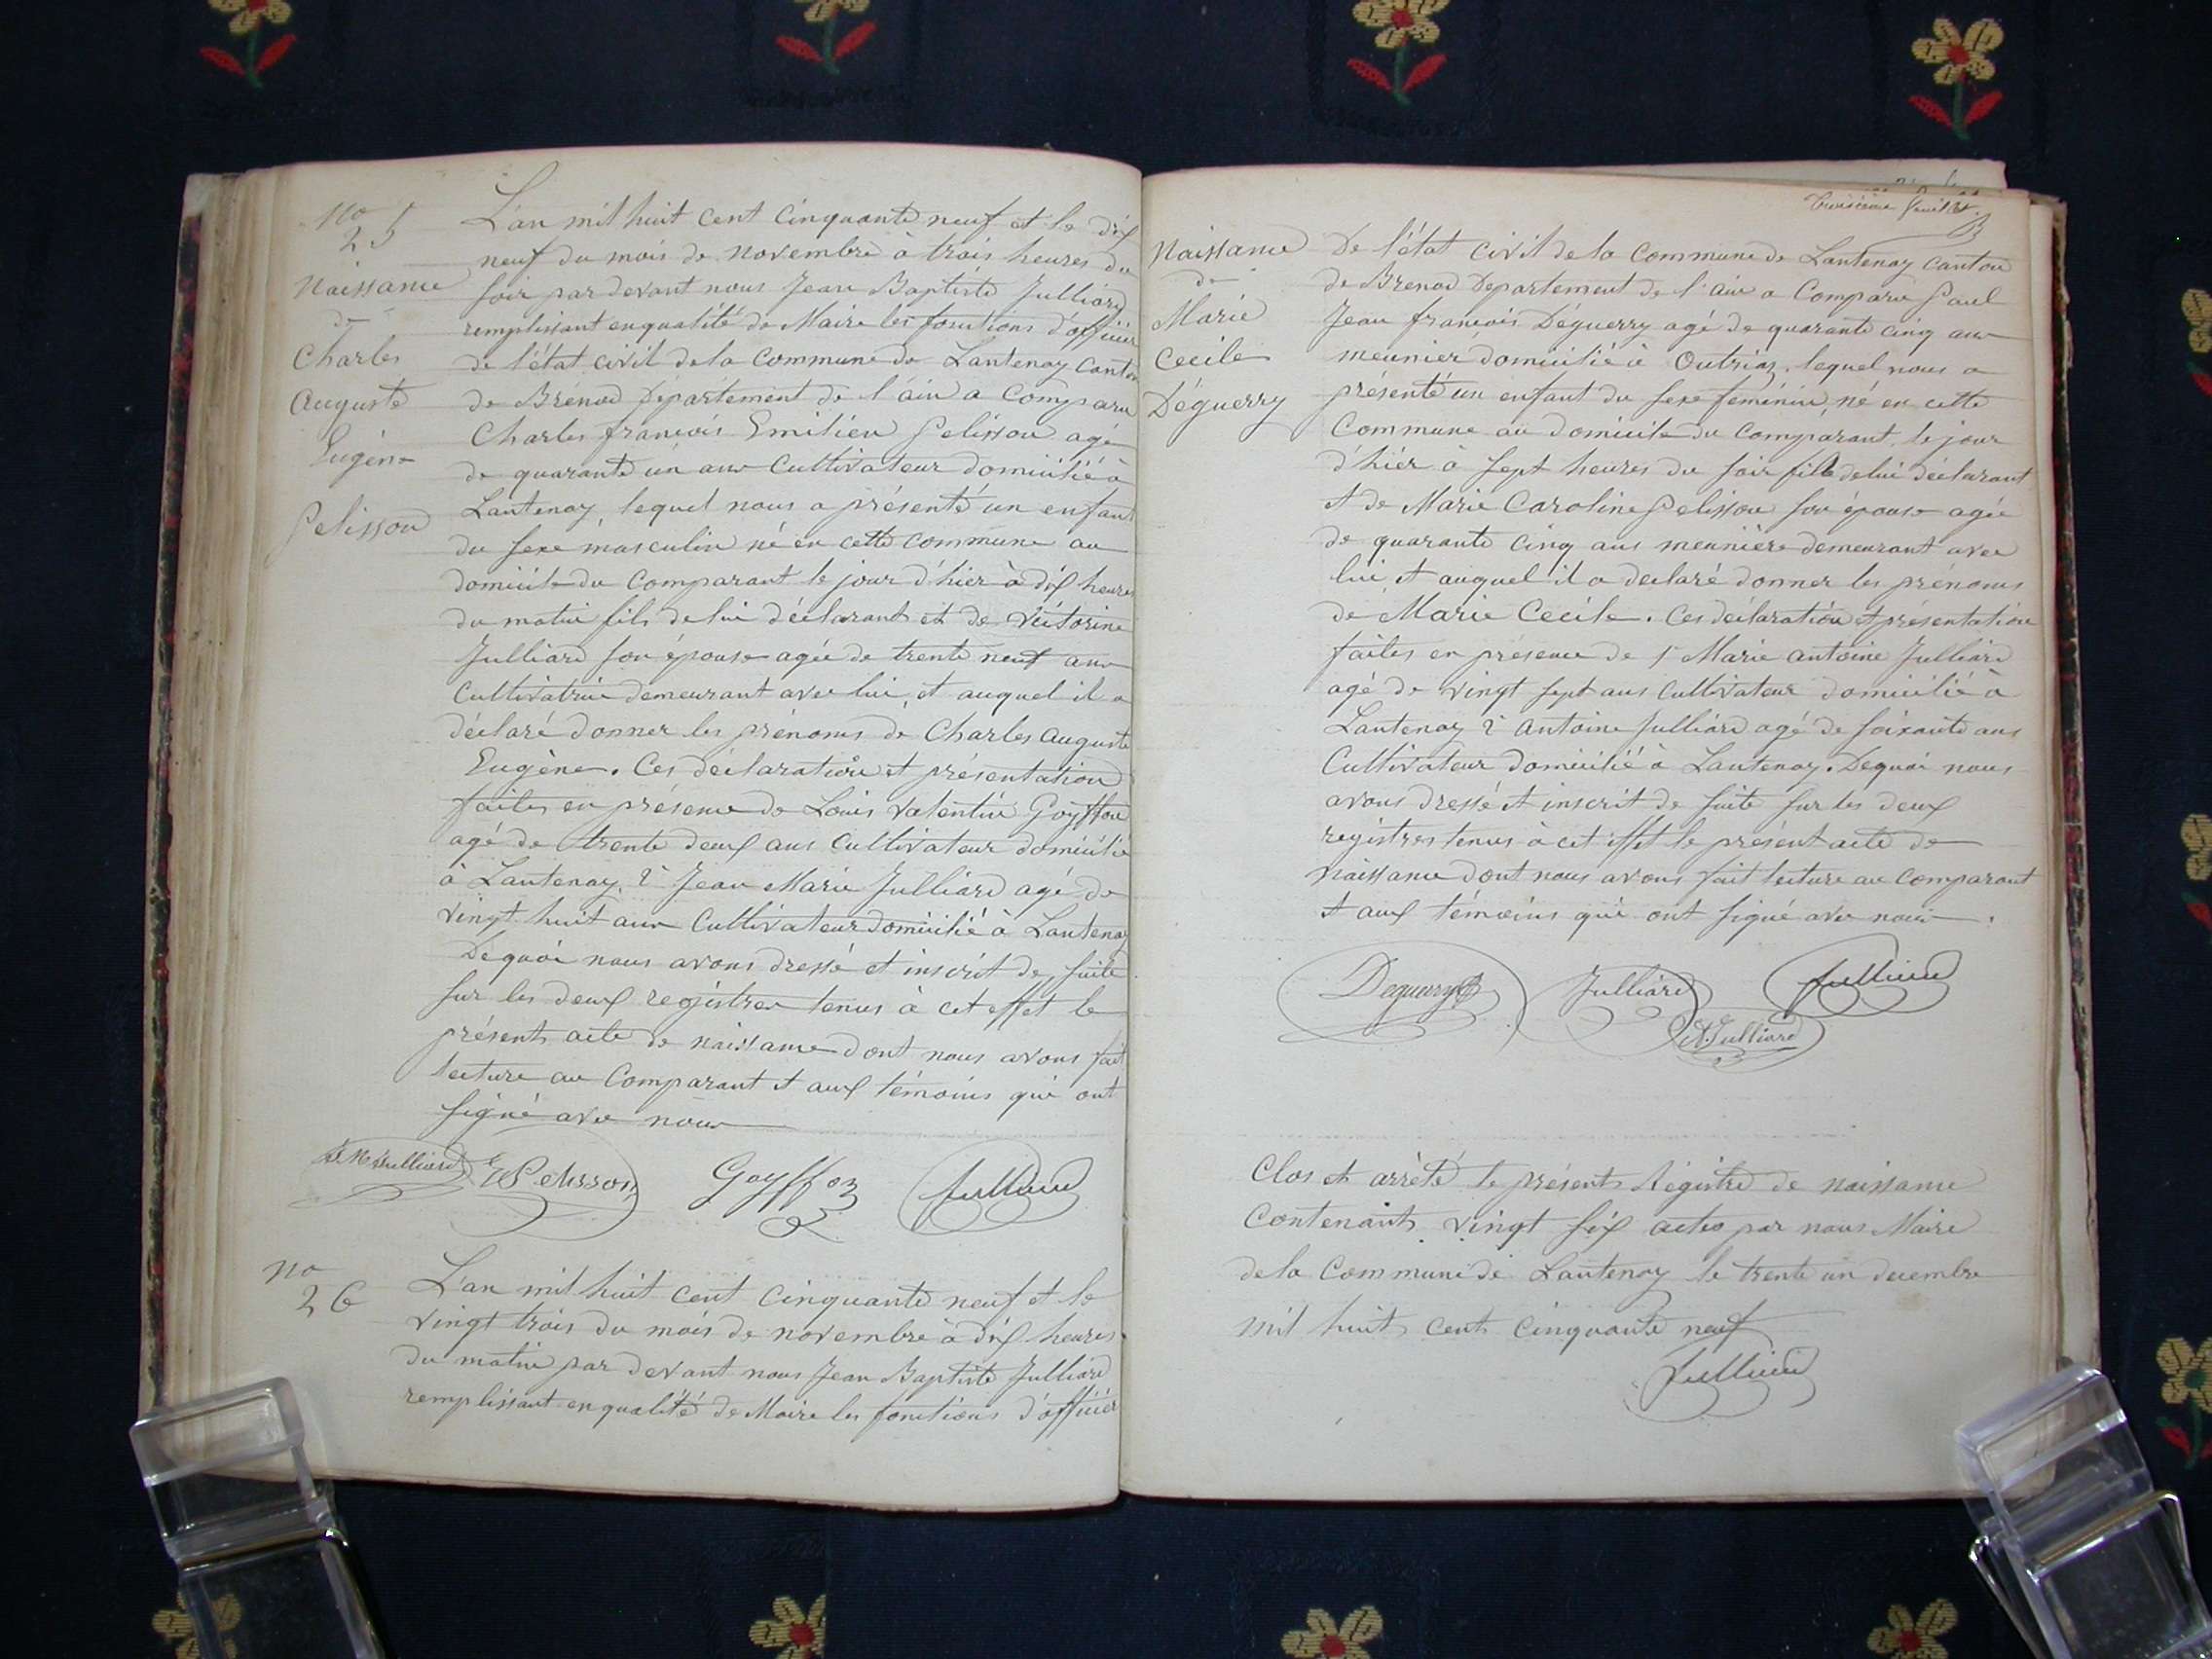 No
25
Naissance
de
Charles
Auguste
Eugène
Pelisson
L'an mil huit cent cinquante neuf et le dix
neuf du mois de novembre à trois heures du
soir par devant nous Jean Baptiste Julliard
remplissant en qualité de Maire les fonctions d'officier
de l'état civil de la Commune de Lantenay Canton
de Brénod Département de l'ain a Comparu
Charles françois Emilien Pelisson agé
de quarante un ans Cultivateur domicilié à
Lantenay, lequel nous a présenté un enfant
du sexe masculin né en cette commune au
domicile du Comparant le jour d'hier à dix heures
du matin fils de lui déclarant et de Victorine
Julliard son épouse agée de trente neuf ans
Cultivatrice demeurant avec lui, et auquel il a
déclaré donner les prénoms de Charles Auguste
Eugène. Ces déclaration et présentation
faites en présence de Louis Valentin Goyffon
agé de trente deux ans Cultivateur domicilié
à Lantenay, 2° Jean Marie Julliard agé de
vingt huit ans Cultivateur domicilié à Lantenay
De quoi nous avons dressé et inscrit de suite
sur les deux registres tenus à cet effet le
présent acte de naissance dont nous avons fait
lecture au Comparant et aux témoins qui ont
signé avec nous
JM Julliard E Pelisson Goyffon Julliard
No
26
L'an mil huit cent cinquante neuf et le
vingt trois du mois de novembre à dix heures
du matin par devant nous Jean Baptiste Julliard
remplissant en qualité de Maire les fonctions d'officier
troisième feuillet
Naissance
de
Marie
Cecile
Déguerry
De l'état civil de la Commune de Lantenay canton
de Brenod Departement de l'ain a Comparu Paul
Jean françois Déguerry agé de quarante cinq ans
meunier domicilié à Outriaz, lequel nous a
présenté un enfant du sexe féminin, né en cette
Commune au domicile du Comparant, le jour
d'hier à sept heures du soir fille de lui déclarant
et de Marie Caroline Pelisson son épouse agée
de quarante cinq ans meunière demeurant avec
lui et auquel il a declaré donner les prénoms
de Marie Cecile. Ces déclaration et présentation
faites en présence de 1° Marie antoine Julliard
agé de vingt sept ans Cultivateur domicilié à
Lantenay 2° Antoine Julliard agé de soixante ans
Cultivateur domicilié à Lantenay. De quoi nous
avons dressé et inscrit de suite sur les deux
registres tenus à cet effet le présent acte de
naissance dont nous avons fait lecture au Comparant
et aux témoins qui ont signé avec nous.
Deguerry Julliard Julliard
A. Julliard
Clos et arrêté le présent Régistre de naissance
Contenant vingt six actes par nous Maire
de la Commune de Lantenay le trente un decembre
mil huit cent cinquante neuf
Julliard